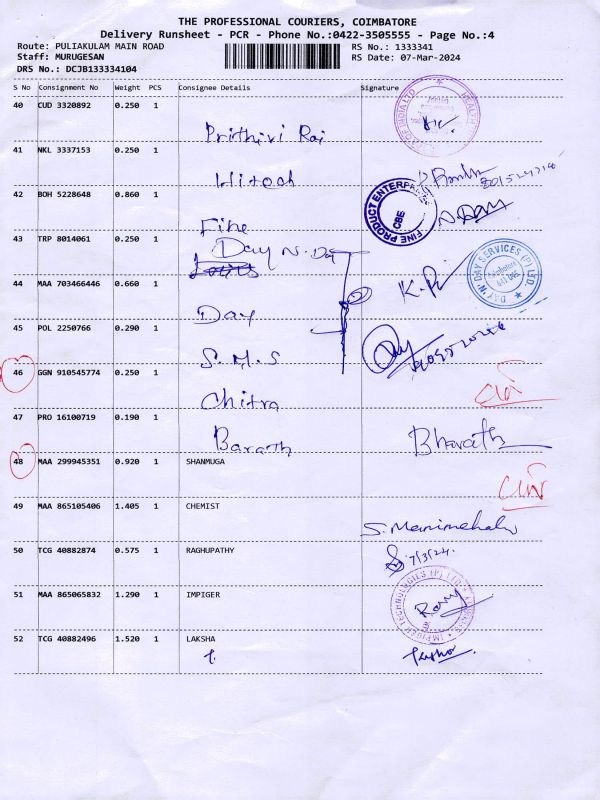 THE PROFESSIONAL COURIERS, COIMBATORE
Delivery Runsheet - PCR - Phone No.:0422-3505555 - Page No.:4
Route: PULIAKULAM MAIN ROAD RS No.: 1333341
Staff: MURUGESAN RS Date: 07-Mar-2024
DRS No.: DCJB133334104
S No Consignment No Weight PCS Consignee Details Signature
40 CUD 3320892 0.250 1
Prithivi Raj
41 NKL 3337153 0.250 1
Hitech
42 BOH 5228648 0.860 1
FINE PRODUCT ENTERPRISES
CBE
Fine
43 TRP 8014061 0.250 1
Day N. Day
44 MAA 703466446 0.660 1
K.P
DAY 'N' DAY SERVICES (P) LTD.
Day
45 POL 2250766 0.290 1
S.M.S
46 GGN 910545774 0.250 1
Chitra
47 PRO 16100719 0.190 1
Barath Bharath
48 MAA 299945351 0.920 1 SHANMUGA
49 MAA 865105406 1.405 1 CHEMIST
S. Manimehala
50 TCG 40882874 0.575 1 RAGHUPATHY
7/3/24.
51 MAA 865065832 1.290 1 IMPIGER
IMPIGER TECHNOLOGIES (P) LTD
52 TCG 40882496 1.520 1 LAKSHA